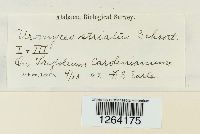 Alabama Biological Survey.
Uromyces striatus Schroet.
I + III
On Trifolium Carolinianum
F. S. Earle
1264175